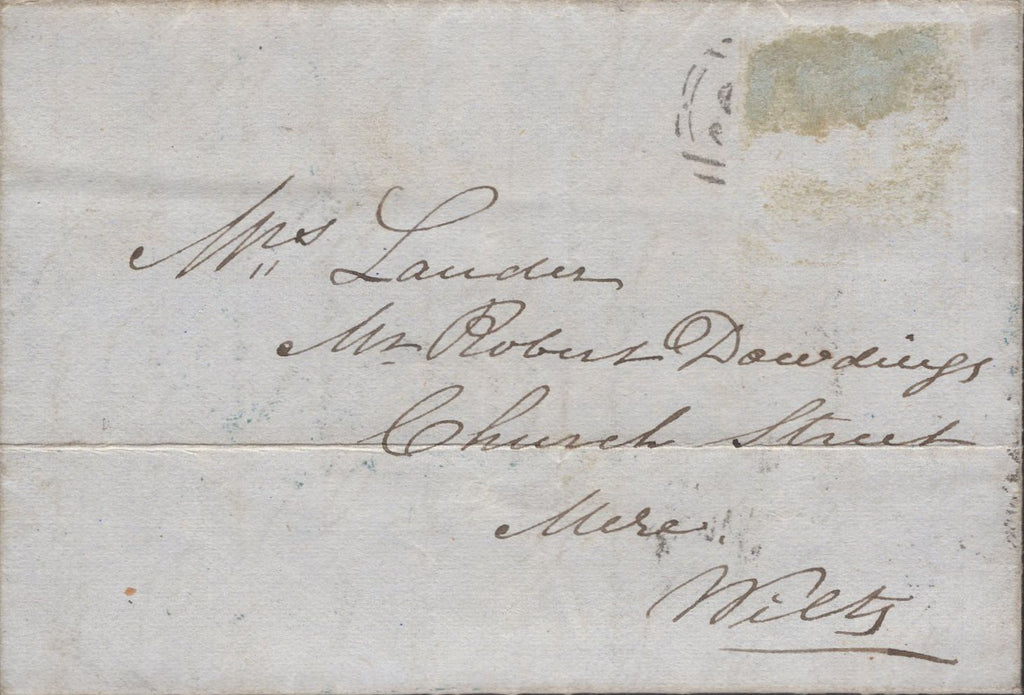 Mrs Lander
Mr Robert Dowdings
Church Street
Mere.
Wilts